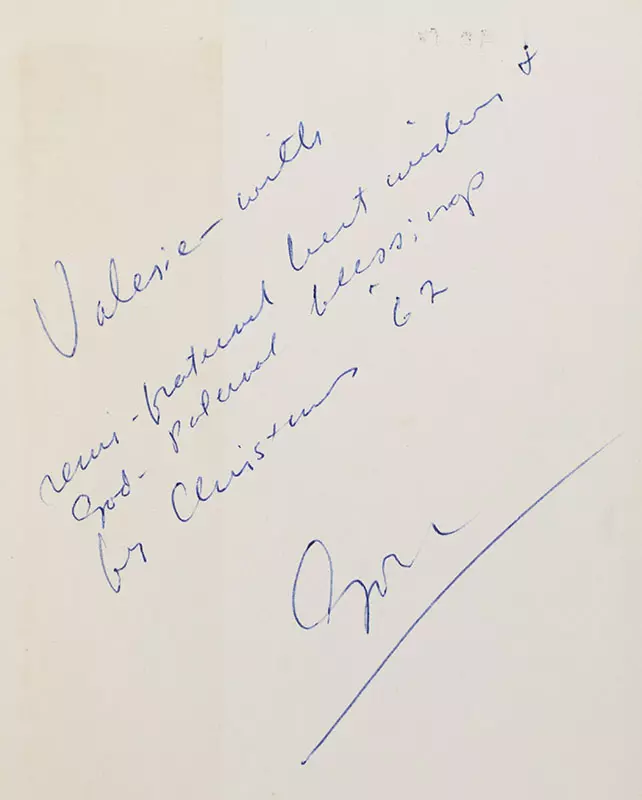 Valerie – with
semi-fraternal best wishes &
God-paternal blessings
by Christmas 62
Gore